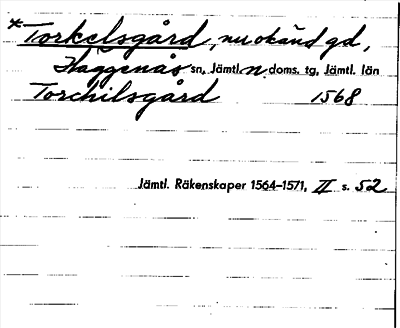 *Torkelsgård, nu okänd gd,
Häggenås sn, Jämtl. n. doms. tg, Jämtl. län
Torchilsgård 1568
Jämtl. Räkenskaper 1564-1571, II s. 52